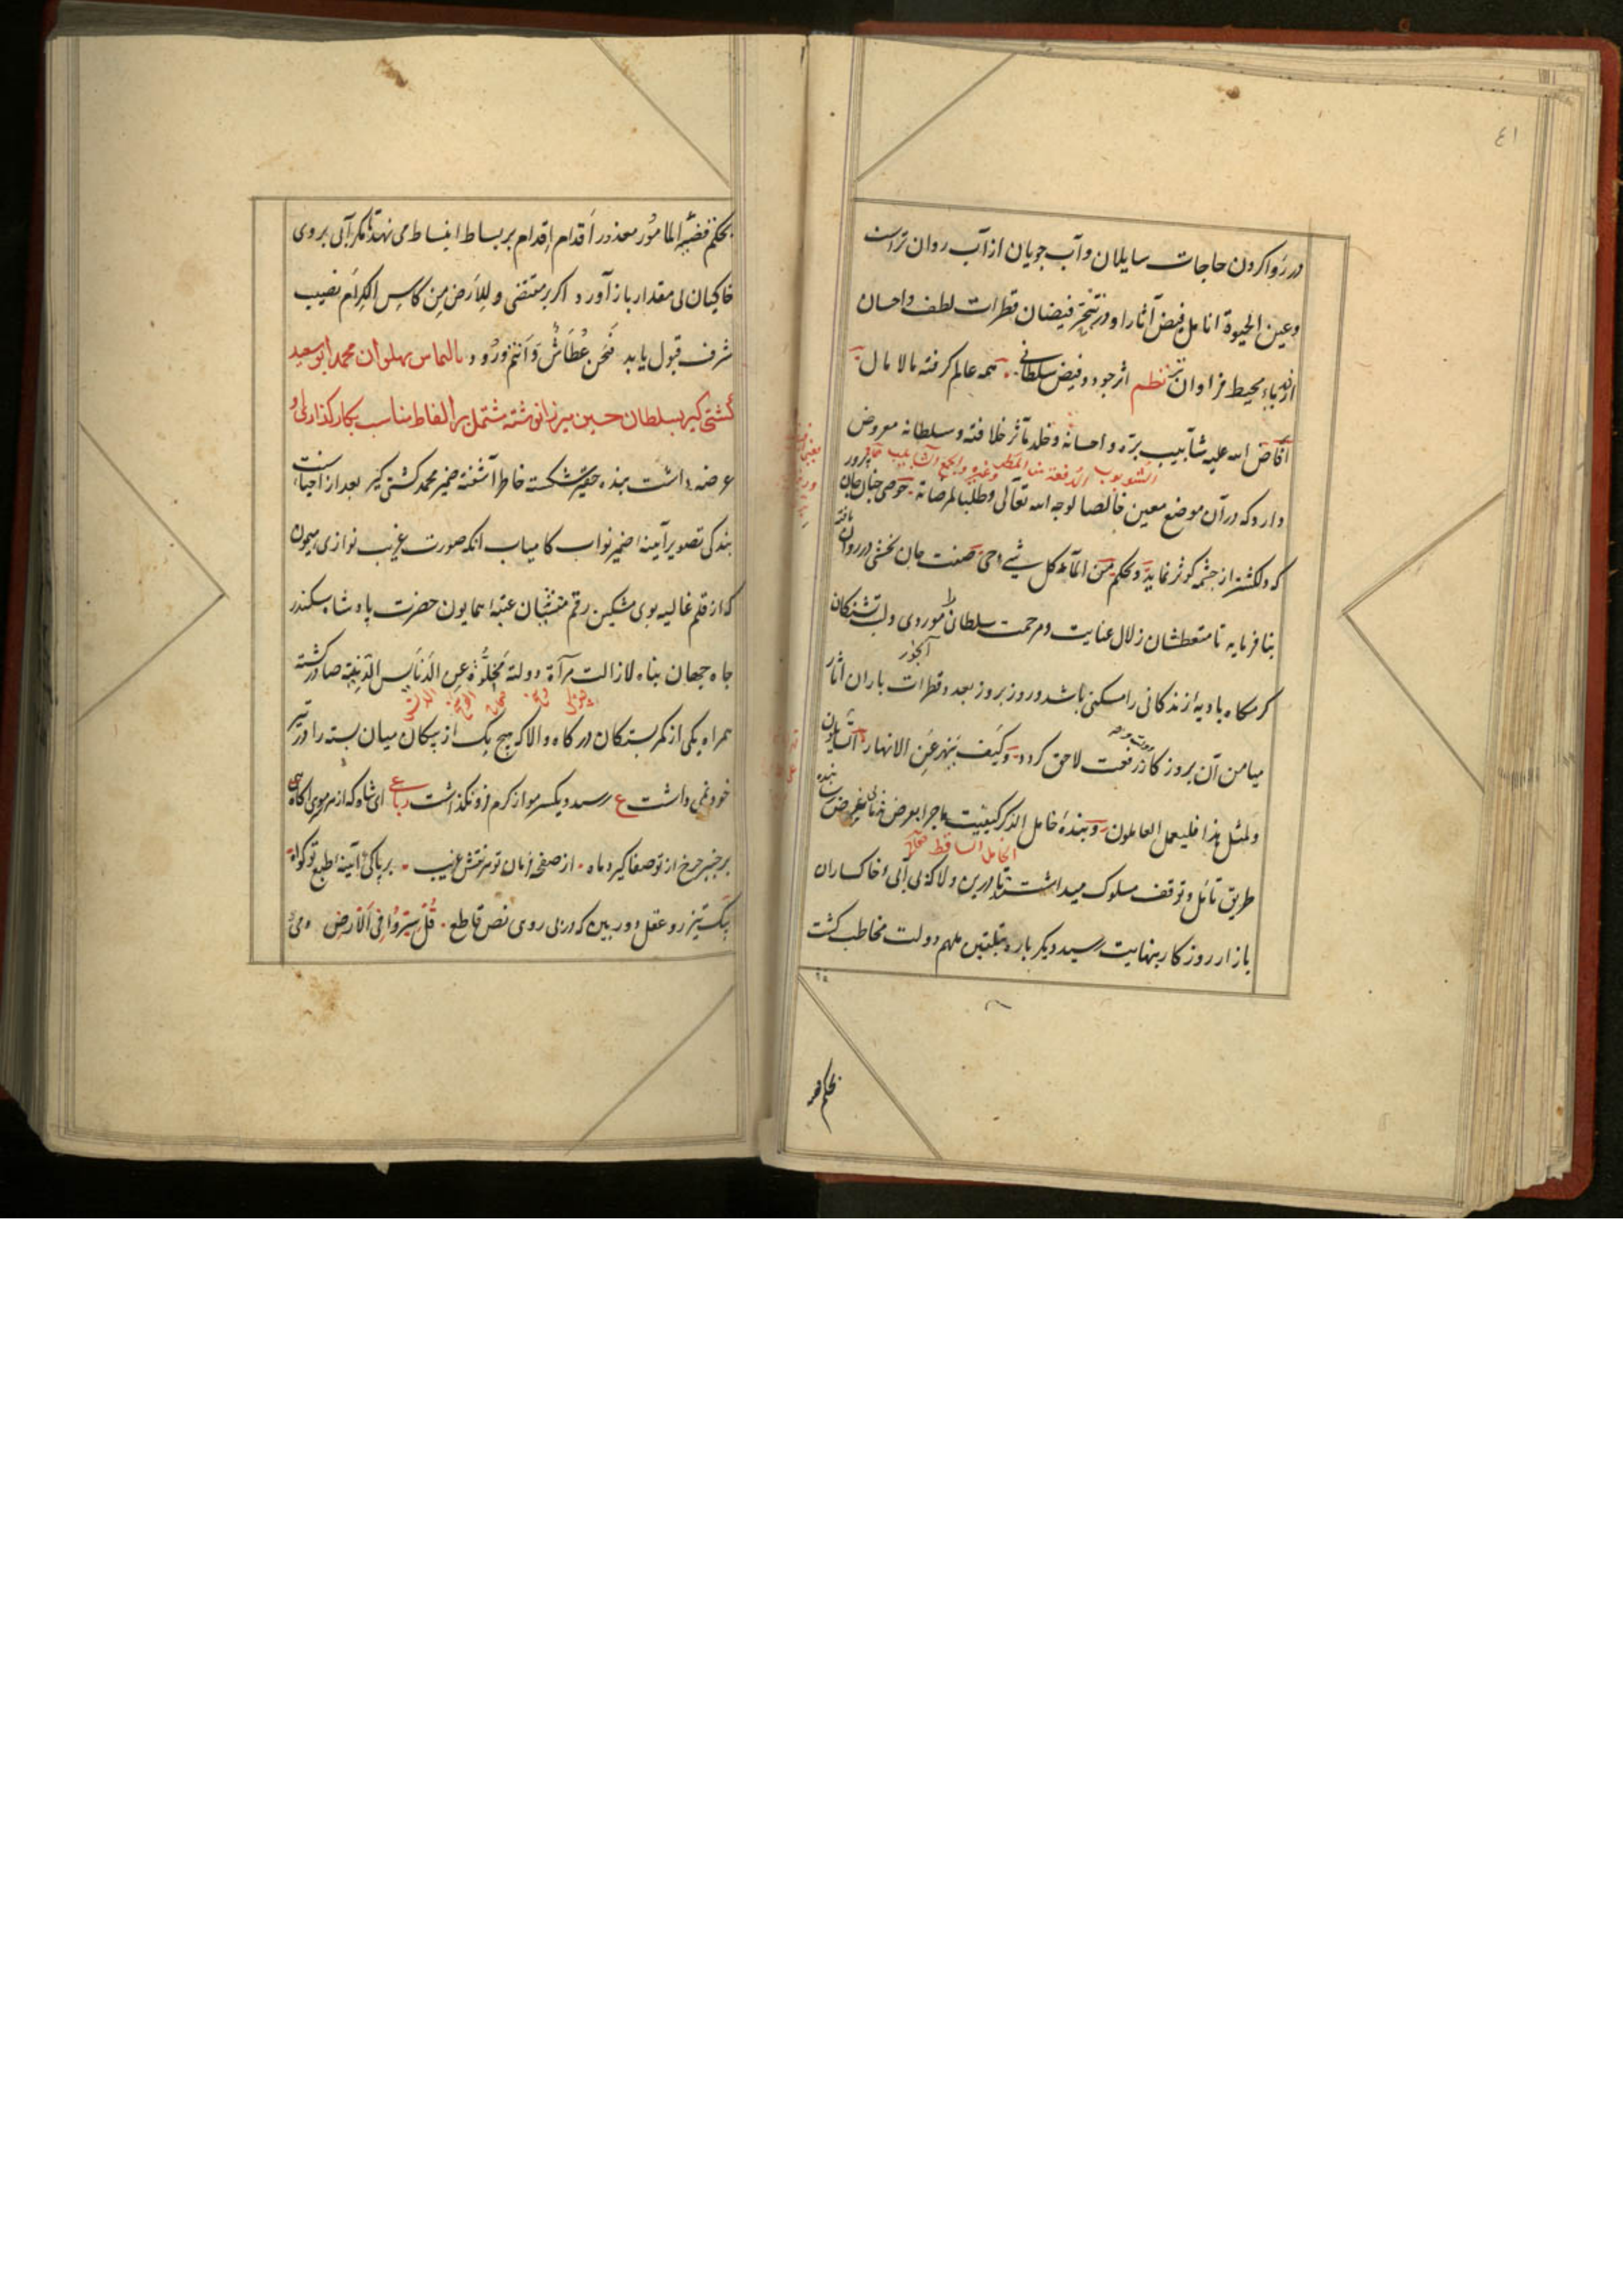 ٤١
در روا کردن حاجات سایلان و آب جویان از آب روان ترست
وعین الحیوة انامل فیض آثار او در تبحر فیضان قطرات لطف و احسان
از دریاء محیط فراوان تر نظم اثر جود و فیض سلطانی همه عالم گرفته مالا مال
افاض الله علیه شآبیب بره و احسانه و خلد مآثر خلافته و سلطانه معروض
الشؤبوب الدفعة من المطر وغیره والجمع الشآبیب
دارد که در آن موضع معین خالصا لوجه الله تعالی و طلبا لمرضاته حوضی چنان جان پرور
که دلکشتر از چشمه کوثر نماید و بحکم من الماء کل شیء حی صفت جان بخشی در روان یافته
بنا فرماید تا متعطشان زلال عنایت و مرحمت سلطانی موروی و لب تشنکان
کرمکاه بادیهٔ زندکانی را مسکنی باشد و روز بروز بعدد قطرات باران آثار
میامن آن بروزکار رفعت لاحق کردد وکیف ینهر عن الانهار السایلون
ولمثل هذا فلیعمل العاملون و بندهٔ خامل الذکر کیفیت ماجرا بعرض
الخامل الساقط
طریق تأمل و توقف مسلوک میداشت تا درین ولا که بی آبیء خاکساران
بازار روزکار بنهایت رسید دیکر باره بتلقین ملهم دولت مخاطب کشت
بحکم
بحکم قضیهٔ المامور معذور اقدام اقدام بر بساط انبساط می نهد مکر آبی بروی
خاکیان بی مقدار باز آورد اکر بر مقتضی وللارض من کاس الکرام نصیب
شرف قبول یابد فنحن عطاش وانتم ورود بالتماس پهلوان محمد ابوسعید
کشتی کیر بسلطان حسین میرزا نوشته مشتمل بر الفاظ مناسب بکار کذار
عرضه داشت بنده حقیر شکسته خاطر آشفته ضمیر محمد کشتی کیر بعد از احیاء سنت
بندکی تصویر آینهٔ ضمیر نواب کامیاب آنکه صورت غریب نوازی میمون
که از قلم غالیه بوی مشکین رقم منشیان عتبهٔ همایون حضرت پادشاه سکندر
جاه جهان پناه لازالت مرآة دولته مجلوة عن الدنایس الدنیة صادر کشته
همراه یکی از کمر بستکان درکاه والا که هیچ یک از پیکان میان بسته را در تیر
خود نمی داشت ع رسید و یکسر مو از کرم فرو نکذاشت رباعی ای شاه که از سر موی آکاهی
بر خنجر چرخ از تو صفا کیرد ماه از صفحهٔ زمان تو نقش غریب بر پاکی آئینهٔ طبع تو کواه
پیک تیز رو عقل دور بین که در پی روی نص قاطع قل سیروا فی الارض